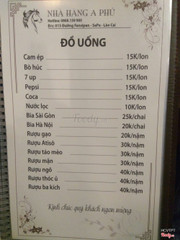 NHÀ HÀNG A PHỦ
ĐỒ UỐNG
Cam ép 15K/lon
Bò húc 15K/lon
7 up 15K/lon
Pepsi 15K/lon
Coca 15K/lon
Nước lọc 10K/lon
Bia Sài Gòn 25k/chai
Bia Hà Nội 20k/chai
Rượu gạo 20k/nậm
Rượu Atisô 20k/nậm
Rượu táo mèo 20k/nậm
Rượu mận 30k/nậm
Rượu ngô 40k/nậm
Rượu thóc ủ 40k/nậm
Rượu ba kích 40k/nậm
Kính chúc quý khách ngon miệng